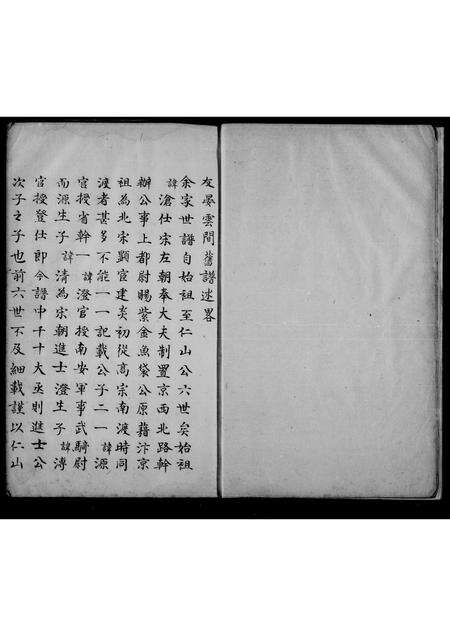 友晏雲間舊譜述畧
余家世譜自始祖至仁山公六世矣始祖
諱滄仕宋左朝奉大夫制置京西北路幹
辦公事上都尉賜紫金魚袋公原籍汴京
祖為北宋顯宦建炎初從高宗南渡時同
渡者甚多不能一一記載公子二一諱源
官授省幹一諱澄官授南安軍事武騎尉
而源生子諱清為宋朝進士澄生子諱漙
官授登仕郎今譜中千十大丞則進士公
次子之子也前六世不及細載謹以仁山